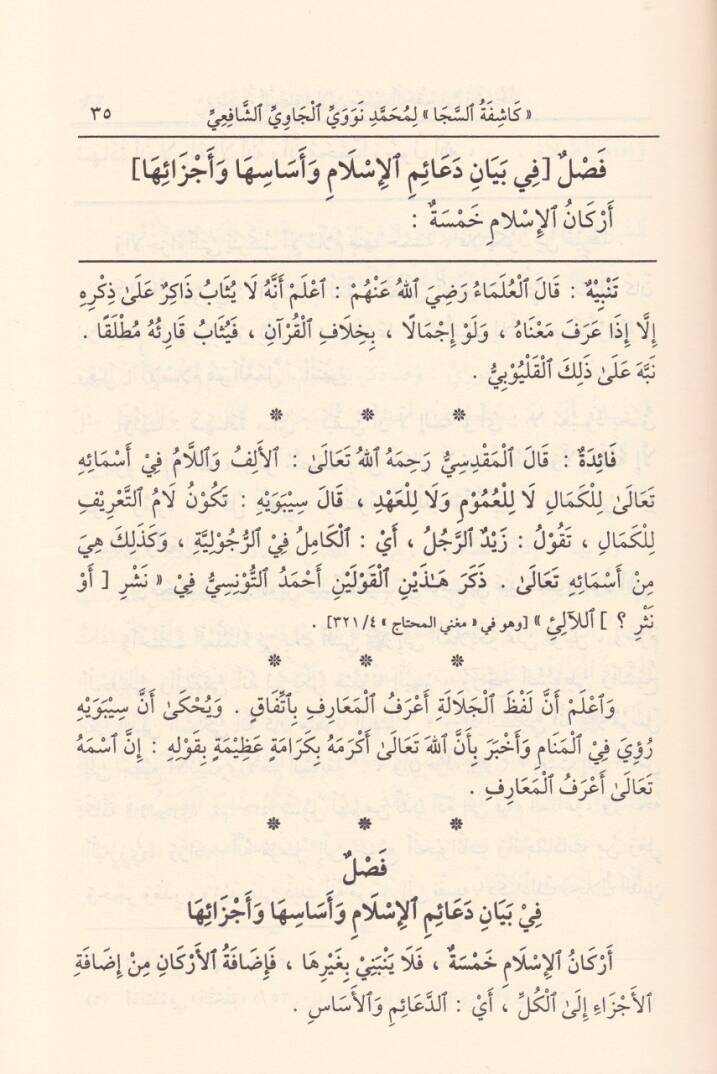 « كَاشِفَةُ ٱلسَّجَا » لِمُحَمَّدِ نَوَوِيِّ ٱلْجَاوِيِّ ٱلشَّافِعِيِّ ٣٥
فَصْلٌ [فِي بَيَانِ دَعَائِمِ ٱلإِسْلَامِ وَأَسَاسِهَا وَأَجْزَائِهَا]
أَرْكَانُ ٱلإِسْلَامِ خَمْسَةٌ :
تَنْبِيْهٌ : قَالَ ٱلْعُلَمَاءُ رَضِيَ ٱللهُ عَنْهُمْ : ٱعْلَمْ أَنَّهُ لَا يُثَابُ ذَاكِرٌ عَلَىٰ ذِكْرِهِ
إِلَّا إِذَا عَرَفَ مَعْنَاهُ ، وَلَوْ إِجْمَالًا ، بِخِلَافِ ٱلْقُرْآنِ ، فَيُثَابُ قَارِئُهُ مُطْلَقًا .
نَبَّهَ عَلَىٰ ذَلِكَ ٱلْقَلْيُوْبِيُّ .
* * *
فَائِدَةٌ : قَالَ ٱلْمَقْدِسِيُّ رَحِمَهُ ٱللهُ تَعَالَىٰ : ٱلأَلِفُ وَٱللَّامُ فِيْ أَسْمَائِهِ
تَعَالَىٰ لِلْكَمَالِ لَا لِلْعُمُوْمِ وَلَا لِلْعَهْدِ ، قَالَ سِيْبَوَيْهِ : تَكُوْنُ لَامُ ٱلتَّعْرِيْفِ
لِلْكَمَالِ ، تَقُوْلُ : زَيْدٌ ٱلرَّجُلُ ، أَيْ : ٱلْكَامِلُ فِيْ ٱلرُّجُوْلِيَّةِ ، وَكَذَلِكَ هِيَ
مِنْ أَسْمَائِهِ تَعَالَىٰ . ذَكَرَ هَـٰذَيْنِ ٱلْقَوْلَيْنِ أَحْمَدُ ٱلتُّوْنِسِيُّ فِيْ « نَشْرِ [ أَوْ
نَثْرِ ؟ ] ٱللآلِئِ » [وهو في « مغني المحتاج » ٣٢١/٤] .
* * *
وَٱعْلَمْ أَنَّ لَفْظَ ٱلْجَلَالَةِ أَعْرَفُ ٱلْمَعَارِفِ بِٱتِّفَاقٍ . وَيُحْكَىٰ أَنَّ سِيْبَوَيْهِ
رُؤِيَ فِيْ ٱلْمَنَامِ وَأَخْبَرَ بِأَنَّ ٱللهَ تَعَالَىٰ أَكْرَمَهُ بِكَرَامَةٍ عَظِيْمَةٍ بِقَوْلِهِ : إِنَّ ٱسْمَهُ
تَعَالَىٰ أَعْرَفُ ٱلْمَعَارِفِ .
* * *
فَصْلٌ
فِيْ بَيَانِ دَعَائِمِ ٱلإِسْلَامِ وَأَسَاسِهَا وَأَجْزَائِهَا
أَرْكَانُ ٱلإِسْلَامِ خَمْسَةٌ ، فَلَا يَنْبَنِيْ بِغَيْرِهَا ، فَإِضَافَةُ ٱلأَرْكَانِ مِنْ إِضَافَةِ
ٱلأَجْزَاءِ إِلَىٰ ٱلْكُلِّ ، أَيْ : ٱلدَّعَائِمِ وَٱلأَسَاسِ .